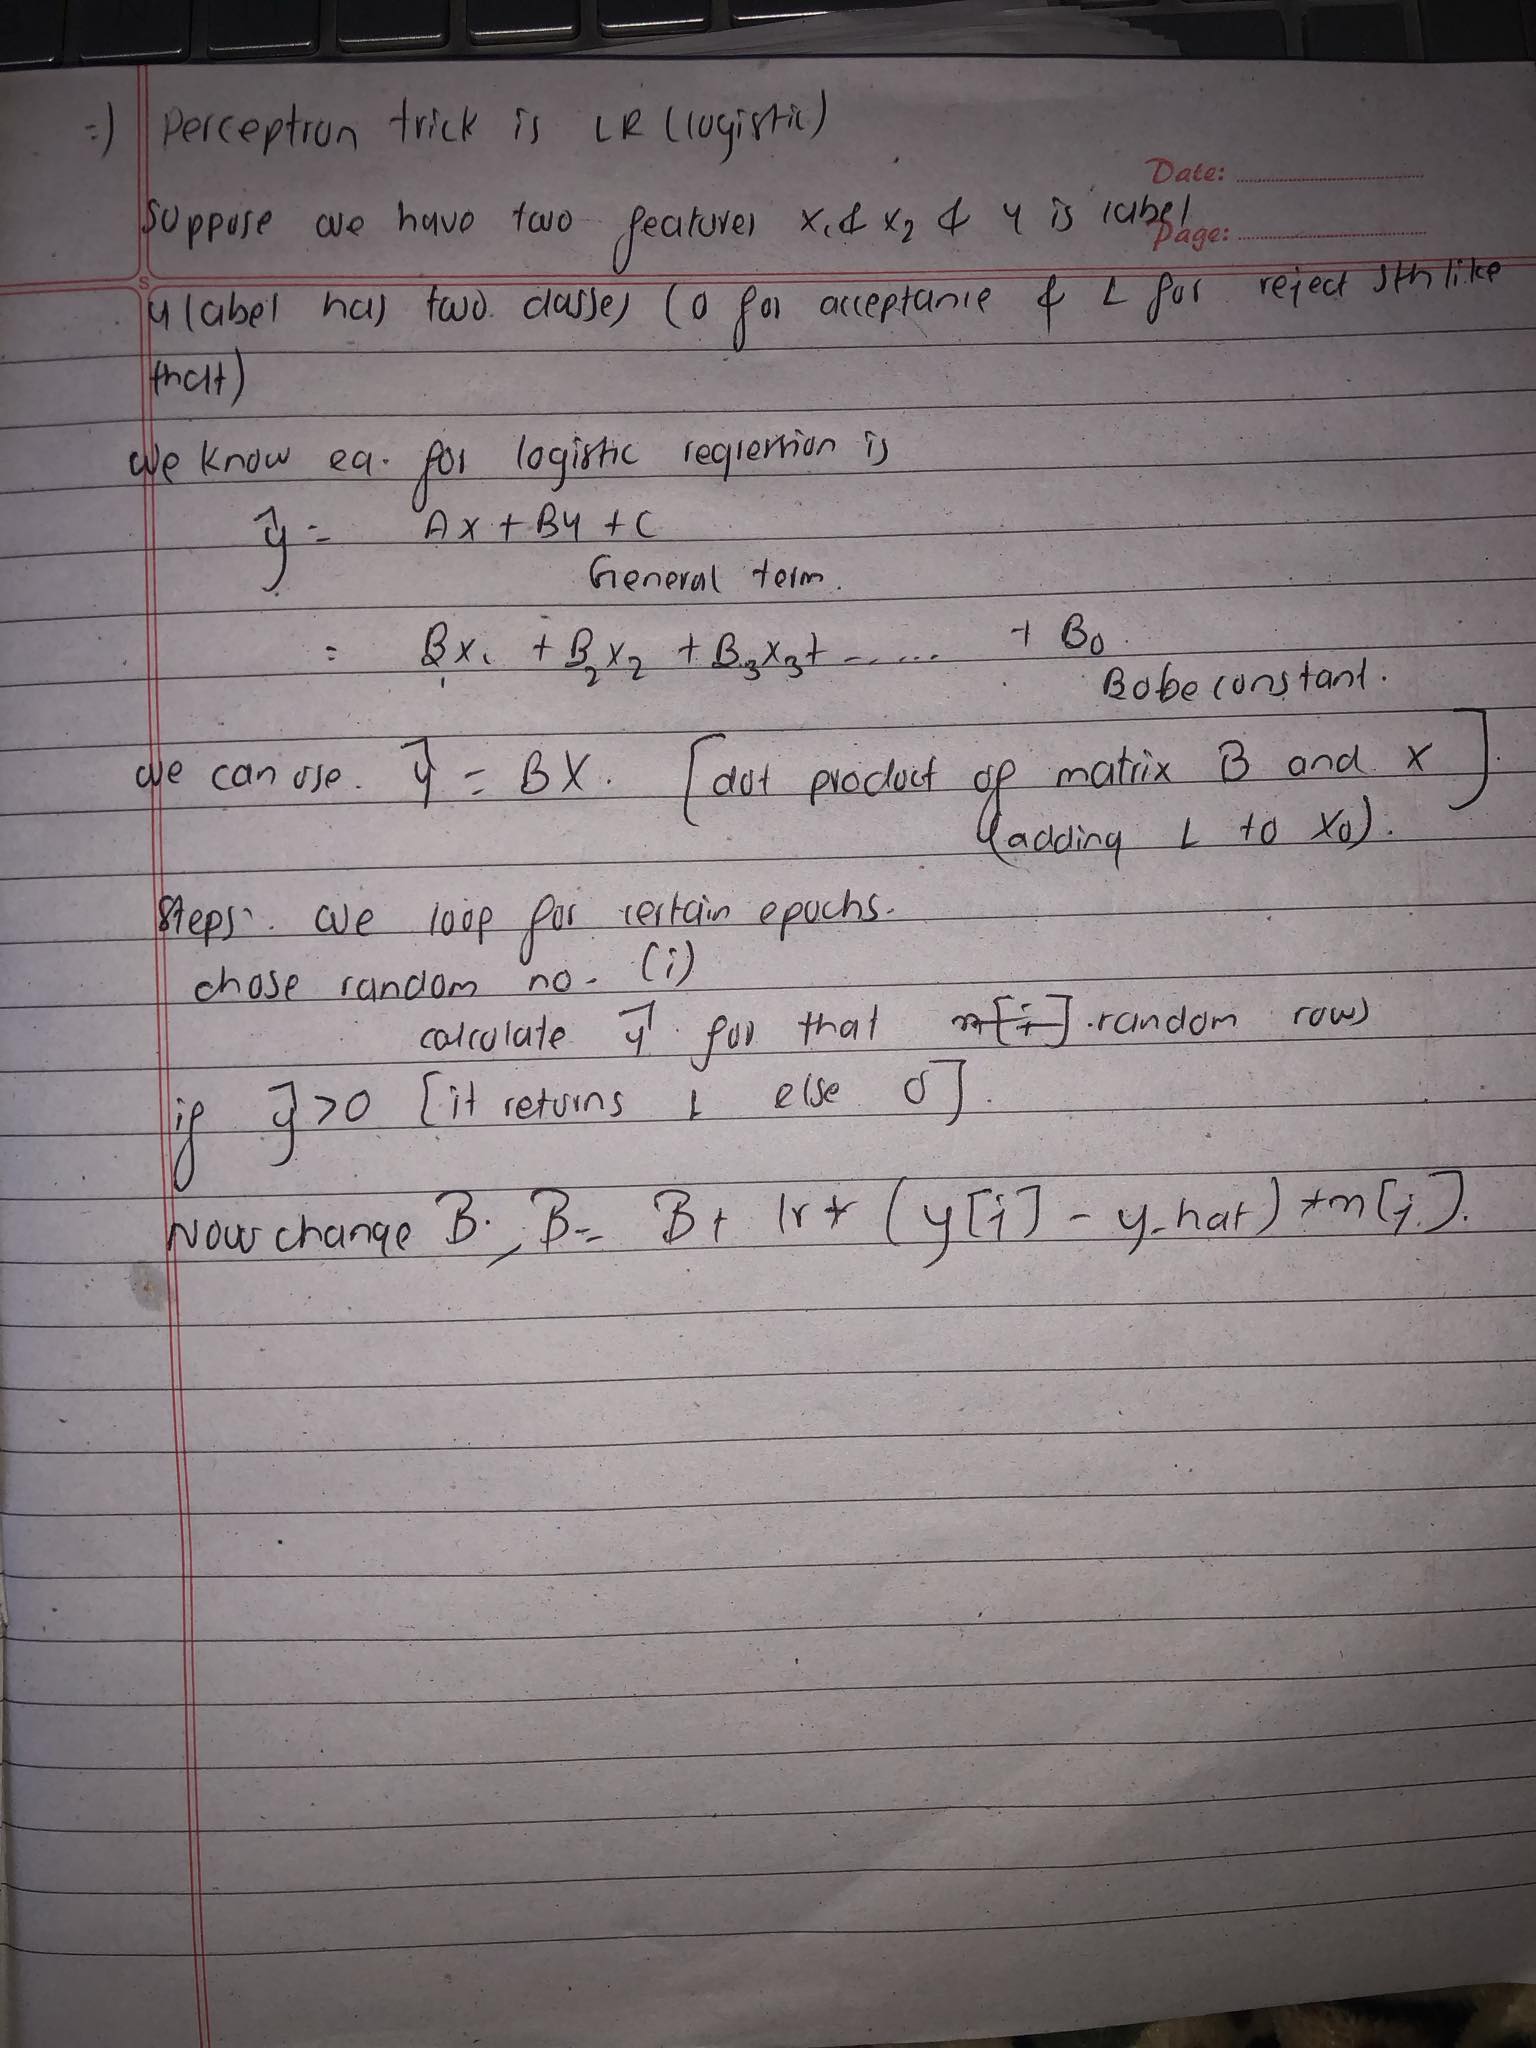 =) Perceptron trick is LR (logistic)
Date:
Suppose we have two features x₁ & x₂ & y is label
Page:
S
y label has two classes (0 for acceptance & 1 for reject sth like
that)
we know eq. for logistic regression is
ŷ = Ax + By + C
General term.
= B₁x₁ + B₂x₂ + B₃x₃ + ...... + B₀.
B₀ be constant.
we can use. ŷ = BX. [dot product of matrix B and x].
(adding 1 to x₀).
Steps:. we loop for certain epochs.
chose random no. (i)
calculate ŷ for that random rows
if ŷ > 0 [it returns 1 else 0].
Now change B., B = B + lr * (y[i] - y_hat) * x[i].